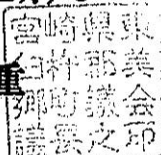 宮崎県東
臼杵郡美
郷町議会
議長之印